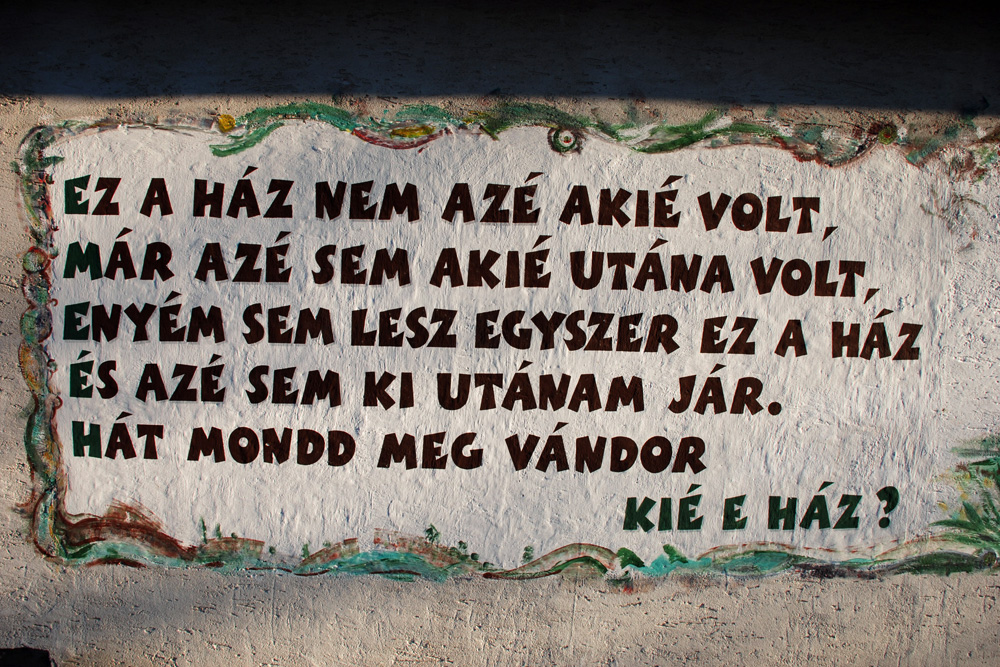 EZ A HÁZ NEM AZÉ AKIÉ VOLT,
MÁR AZÉ SEM AKIÉ UTÁNA VOLT,
ENYÉM SEM LESZ EGYSZER EZ A HÁZ
ÉS AZÉ SEM KI UTÁNAM JÁR.
HÁT MONDD MEG VÁNDOR
KIÉ E HÁZ?